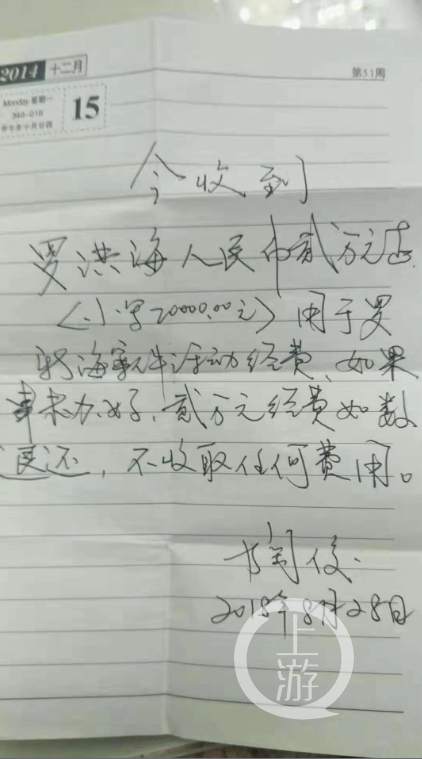 2014 十二月
第51周
Monday 星期一
15
今收到
罗洪海人民币贰万元正
(小写20000.00元)用于罗
海案件活动经费、如果
事未办好,贰万元经费如数
退还,不收取任何费用。
俊
2015年8月28日
上游